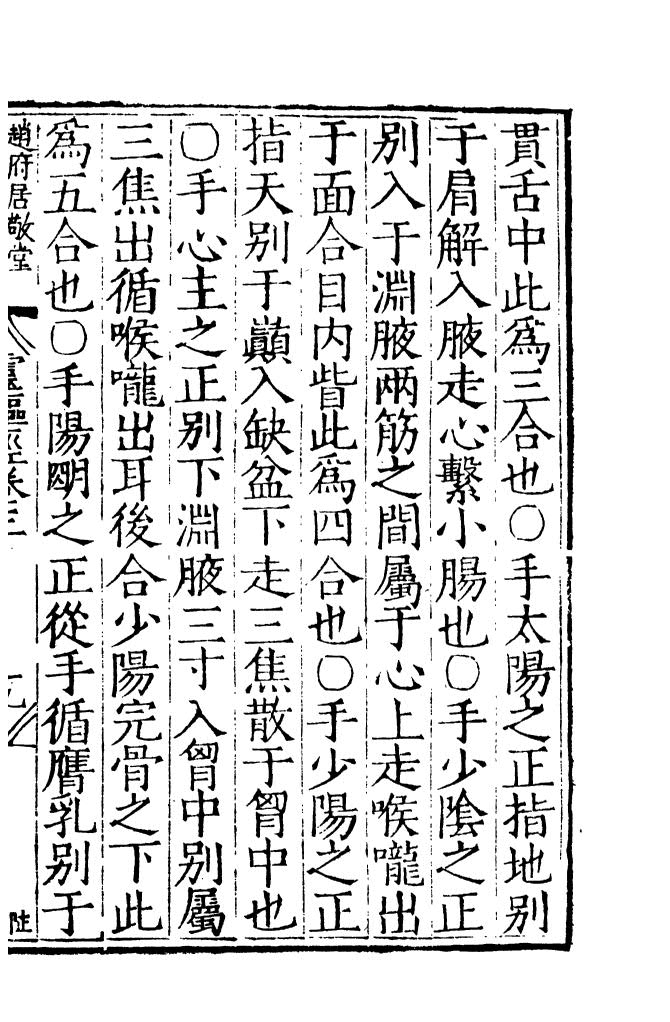 貫舌中此爲三合也〇手太陽之正指地别
于肩解入腋走心繫小腸也〇手少陰之正
别入于淵腋兩筋之間屬于心上走喉嚨出
于面合目内眥此爲四合也〇手少陽之正
指天别于巓入缺盆下走三焦散于胷中也
〇手心主之正别下淵腋三寸入胷中别屬
三焦出循喉嚨出耳後合少陽完骨之下此
爲五合也〇手陽明之正從手循膺乳别于
趙府居敬堂